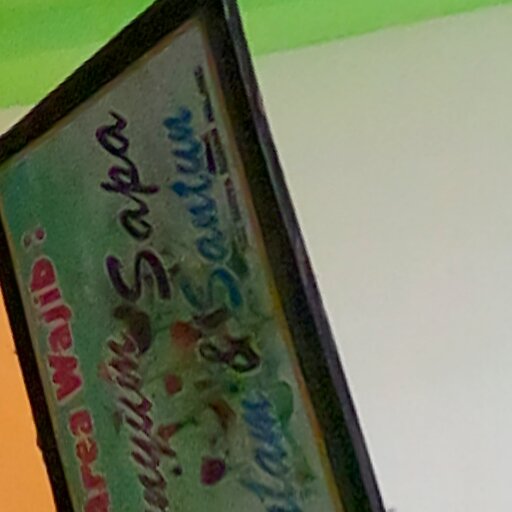 area Wajib:
nyum Sapa
alam & Santun